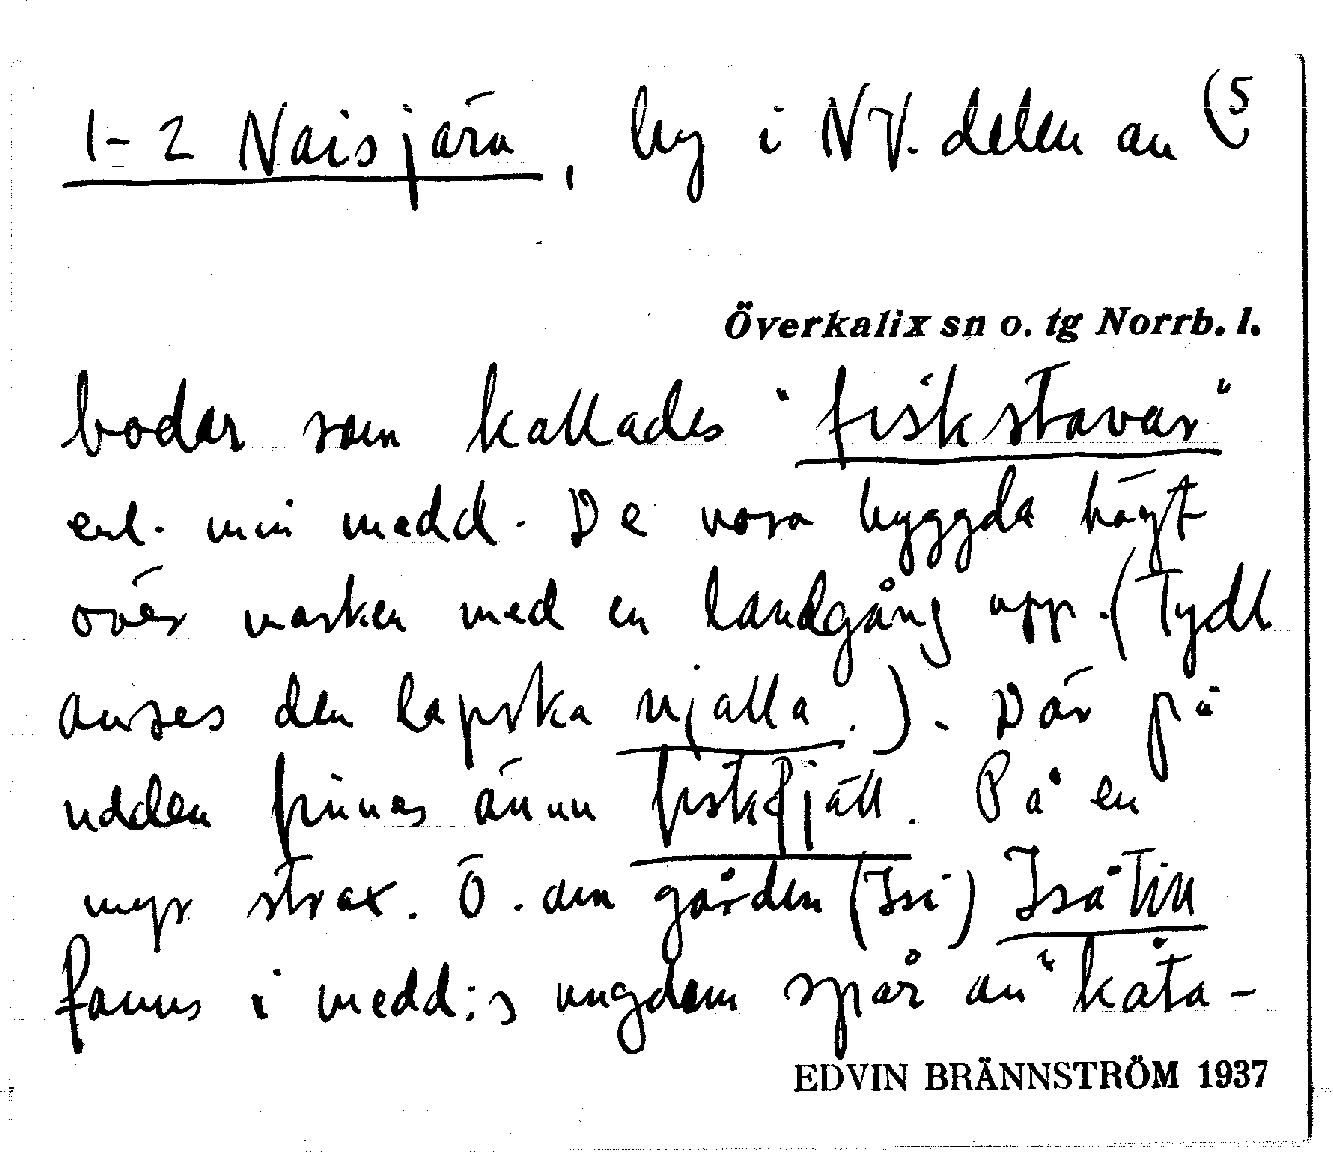 1-2 Naisjärv, by i NV. delen av (5
Överkalix sn o. tg Norrb. l.
bodar som kallades "fiskstavar"
enl. min medd. De voro byggda högt
över marken med en landgång upp. (Tydl
avses den lapska njalla.). Där på
udden finnes ännu fiskfjäll. På en
myr strax. Ö. om gården (Isi)
fanns i medd:s ungdom spår av "kåta-
EDVIN BRÄNNSTRÖM 1937